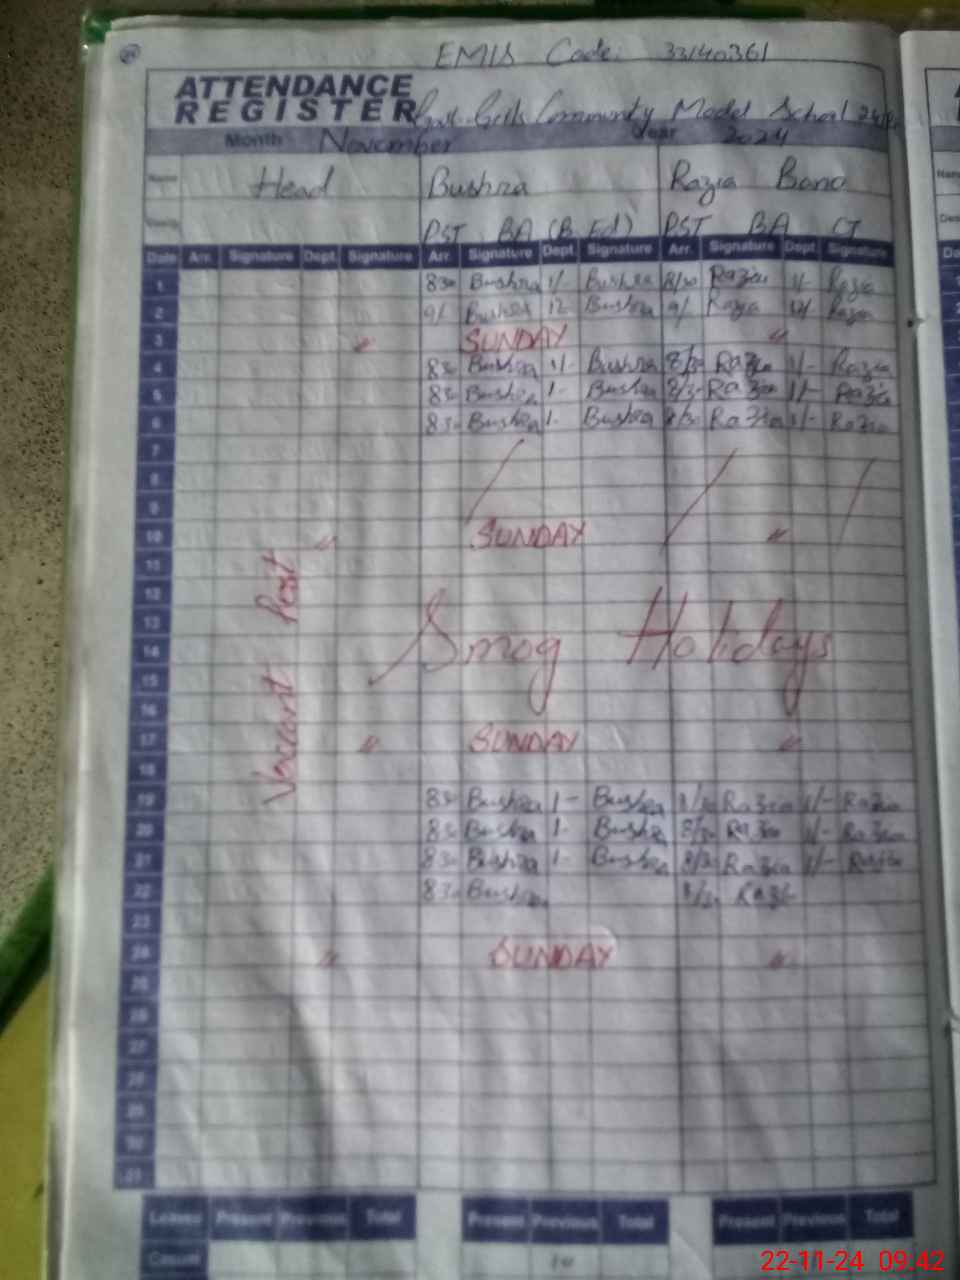 EMIS Code: 33140361
ATTENDANCE
REGISTER Govt. Girls Community Model School
Month November Year 2024
Name Head Bushra Razia Bano
PST BA (B.Ed) PST BA CT
Date Arr. Signature Dept. Signature Arr. Signature Dept. Signature Arr. Signature Dept. Signature
1 830 Bushra 1/- Bushra 8/30 Razia 1/- Razia
2 9/ Bushra 12 Bushra 9/ Razia 12/ Razia
3 " SUNDAY "
4 830 Bushra 1/- Bushra 8/30 Razia 1/- Razia
5 830 Bushra 1- Bushra 8/30 Razia 1/- Razia
6 830 Bushra 1- Bushra 8/30 Razia 1/- Razia
7
8
9
10 " SUNDAY "
11
12
13
14 Smog Holidays
15
16
17 " SUNDAY "
18
Vacant Post
19 830 Bushra 1- Bushra 8/30 Razia 1/- Razia
20 830 Bushra 1- Bushra 8/30 Razia 1/- Razia
21 830 Bushra 1- Bushra 8/30 Razia 1/- Razia
22 830 Bushra 8/30 Razia
23
24 " SUNDAY "
25
26
27
28
29
30
31
Leaves Present Previous Total Present Previous Total Present Previous Total
Casual
22-11-24 09:42